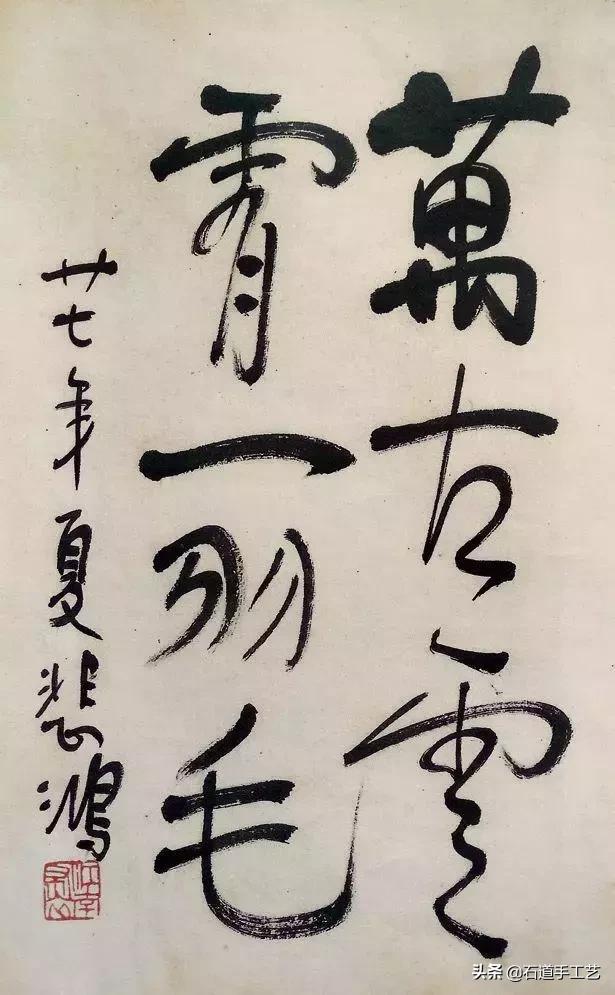 萬古雲
霄一羽毛
廿七年夏悲鴻
头条 @石道手工艺